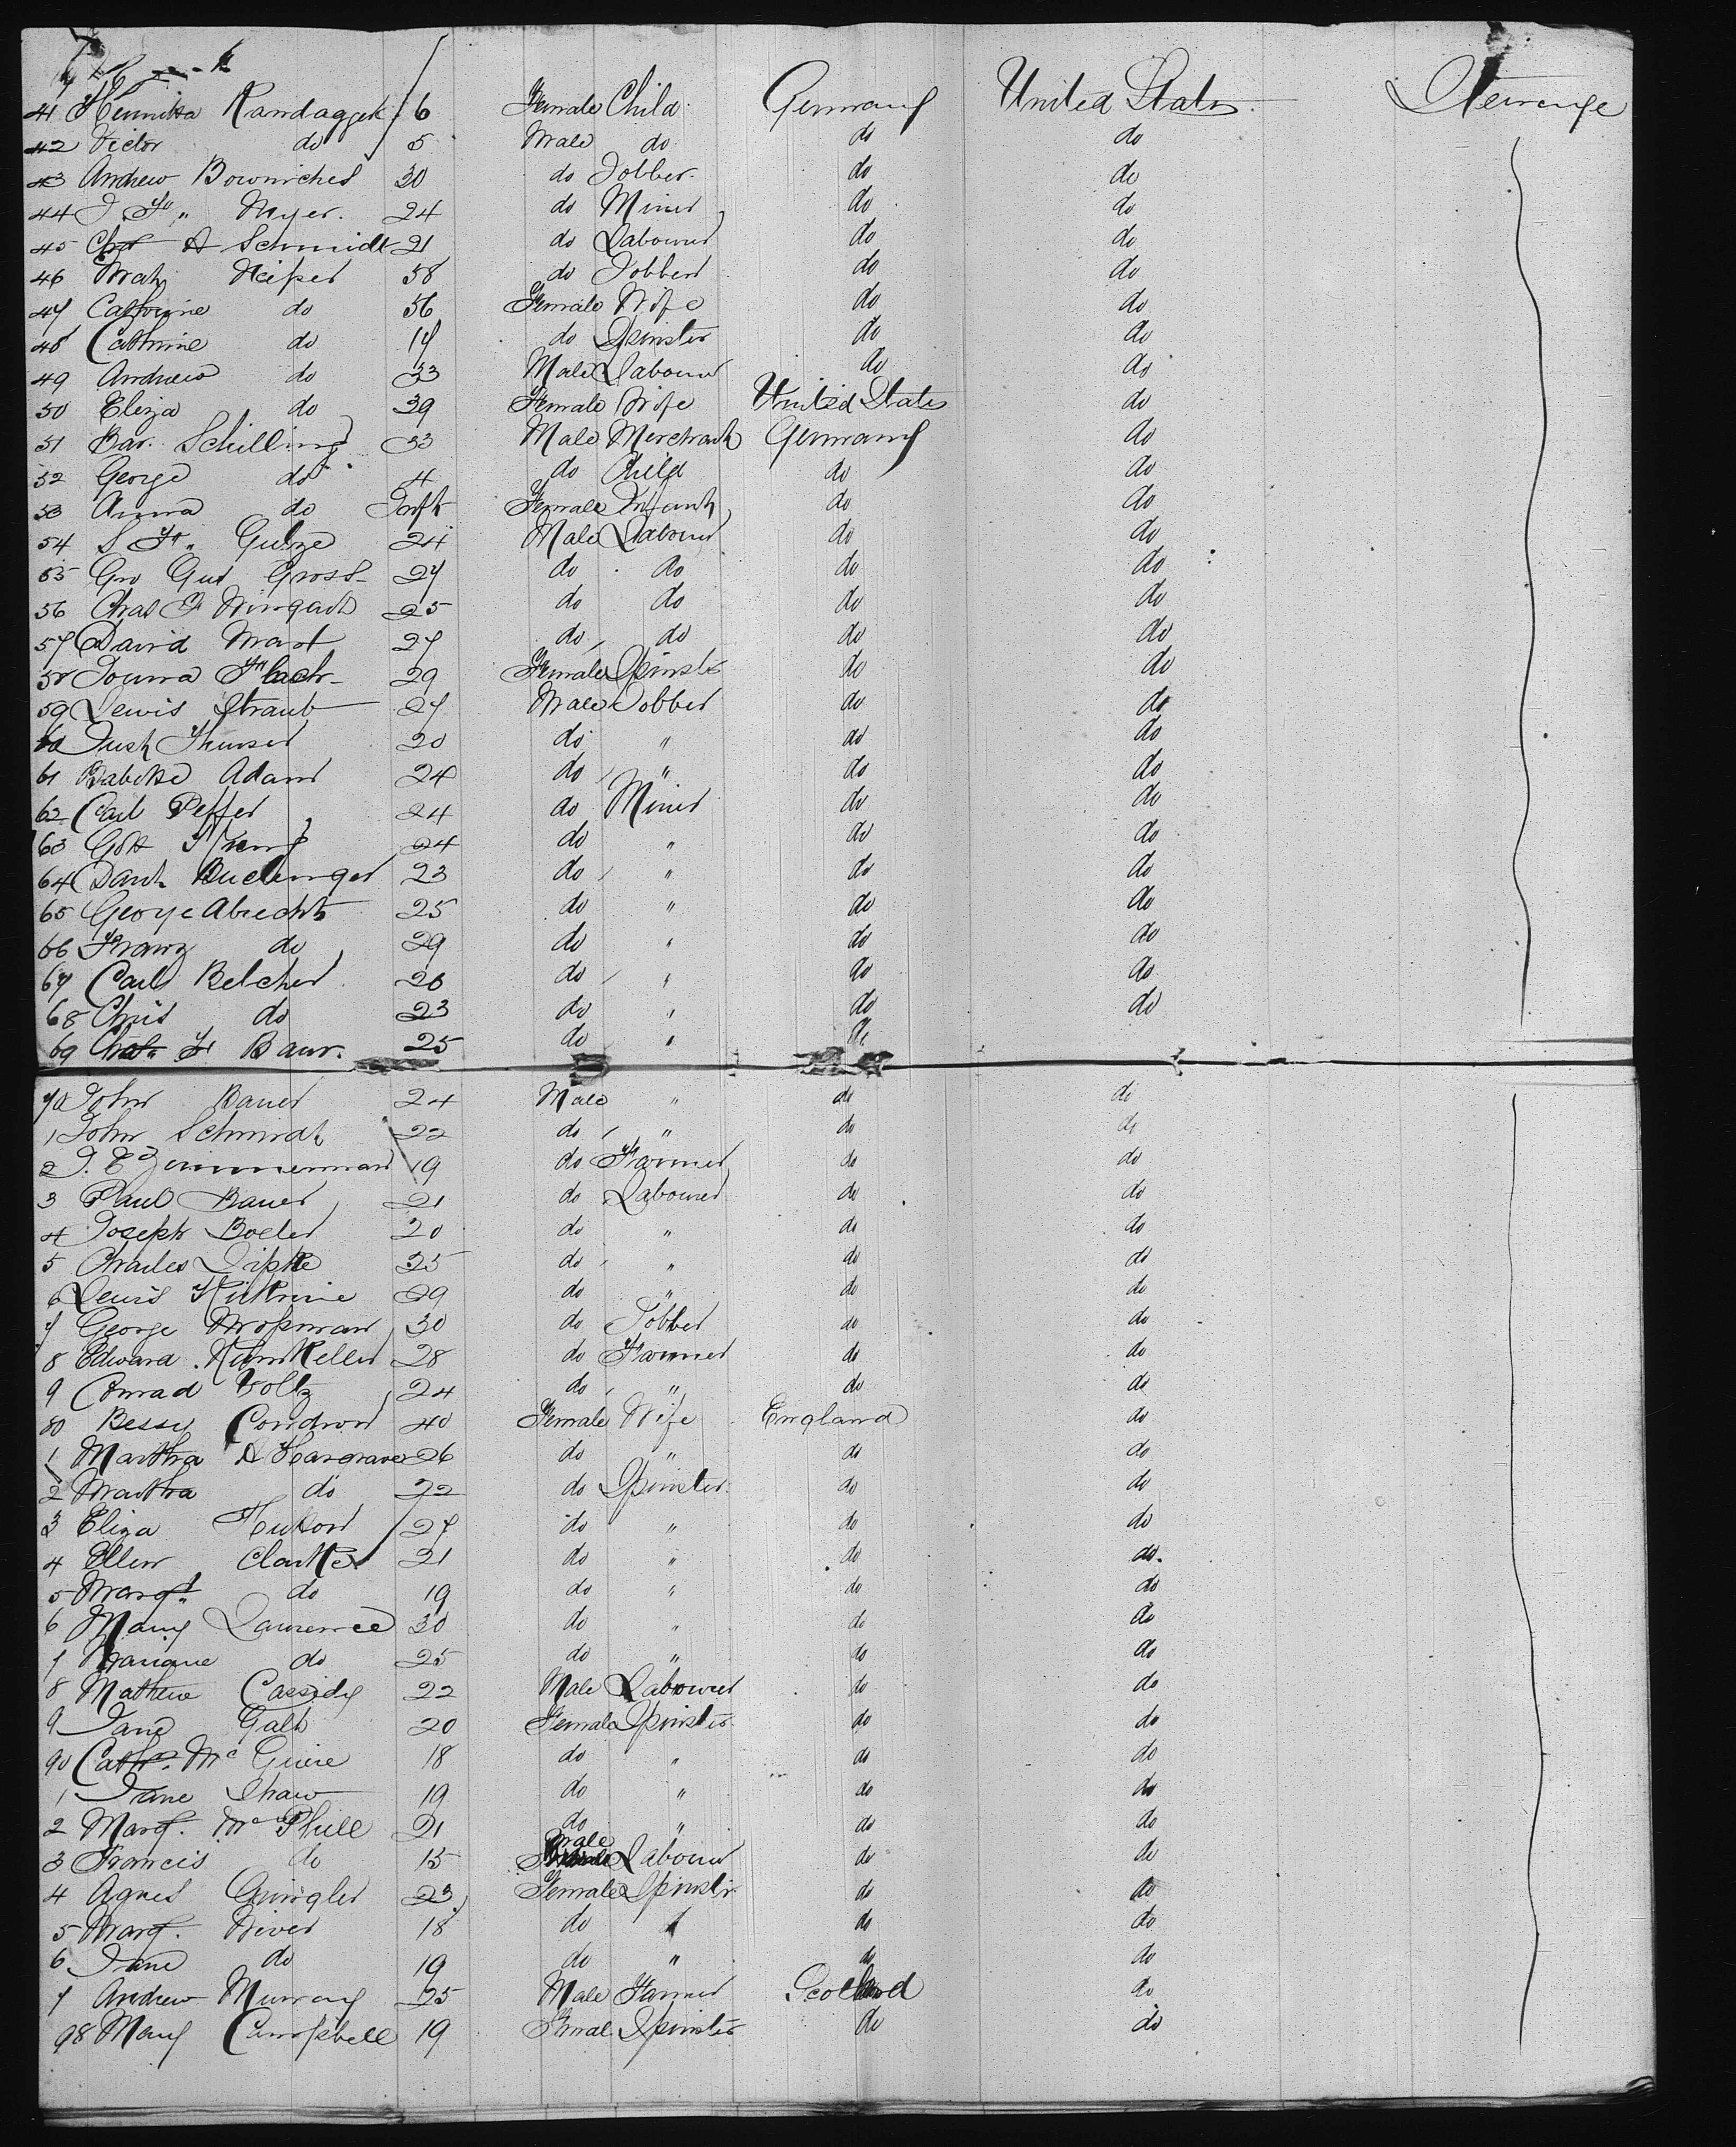 41 Hennika Randaggek 6 Female Child Germany United States Steerage
42 Victor do 5 Male do do do
43 Andrew Bownichel 30 do Jobber do do
44 J Fr. Myer. 24 do Miner do do
45 Chs A Schmidt 21 do Labourer do do
46 Mah Keiper 58 do Jobber do do
47 Cathrine do 56 Female Wife do do
48 Cathrine do 17 do Spinster do do
49 Andrew do 33 Male Labourer do do
50 Eliza do 39 Female Wife United States do
51 Bar. Schilling 33 Male Merchant Germany do
52 George do 4 do Child do do
53 Anna do Inft Female Infant do do
54 S Fr. Gulze 24 Male Labourer do do
55 Geo Gus Gross 27 do do do do
56 Chas F Wingad 25 do do do do
57 David Mast 27 do do do do
58 Flach 29 Female Spinster do do
59 Lewis Straub 27 Male Jobber do do
60 20 do " do do
61 Babette Adam 24 do " do do
62 Carl Peffer 24 do Miner do do
63 Gott 24 do " do do
64 Danl. Buclinger 23 do " do do
65 George Abrecht 25 do " do do
66 Franz do 29 do " do do
67 Carl Belcher 26 do " do do
68 Chris do 23 do " do do
69 Chas. F Baur. 25 do " do
70 John Bauer 24 Male " do do
1 John Schmidt 22 do " do do
2 J. E Zimmerman 19 do Farmer do do
3 Paul Bauer 21 do Labourer do do
4 Joseph Boeler 20 do " do do
5 Charles Lipke 35 do " do do
6 Lewis 29 do " do do
7 George Mossman 30 do Jobber do do
8 Edward Kunkeller 28 do Farmer do do
9 Conrad Voltz 24 do " do do
80 Bessy Condron 40 Female Wife England do
1 Martha A Hargrave 26 do " do do
2 Martha do 22 do Spinster do do
3 Eliza Hutton 27 do " do do
4 Ellen Clarke 21 do " do do
5 Margt. do 19 do " do do
6 Mary Laurence 30 do " do do
7 Mariane do 25 do " do do
8 Mathew Cassidy 22 Male Labourer do do
9 Jane Galt 20 Female Spinster do do
90 Cathr. Mc Guire 18 do " do do
1 Jane Shaw 19 do " do do
2 Margt. Mc Phill 21 do " do do
3 Francis do 15 Male Labourer do do
4 Agnes Gringler 23 Female Spinster do do
5 Margt. Niver 18 do " do do
6 Jane do 19 do " do do
7 Andrew Murray 25 Male Farmer Scotland do
98 Mary Campbell 19 Femal Spinster do do